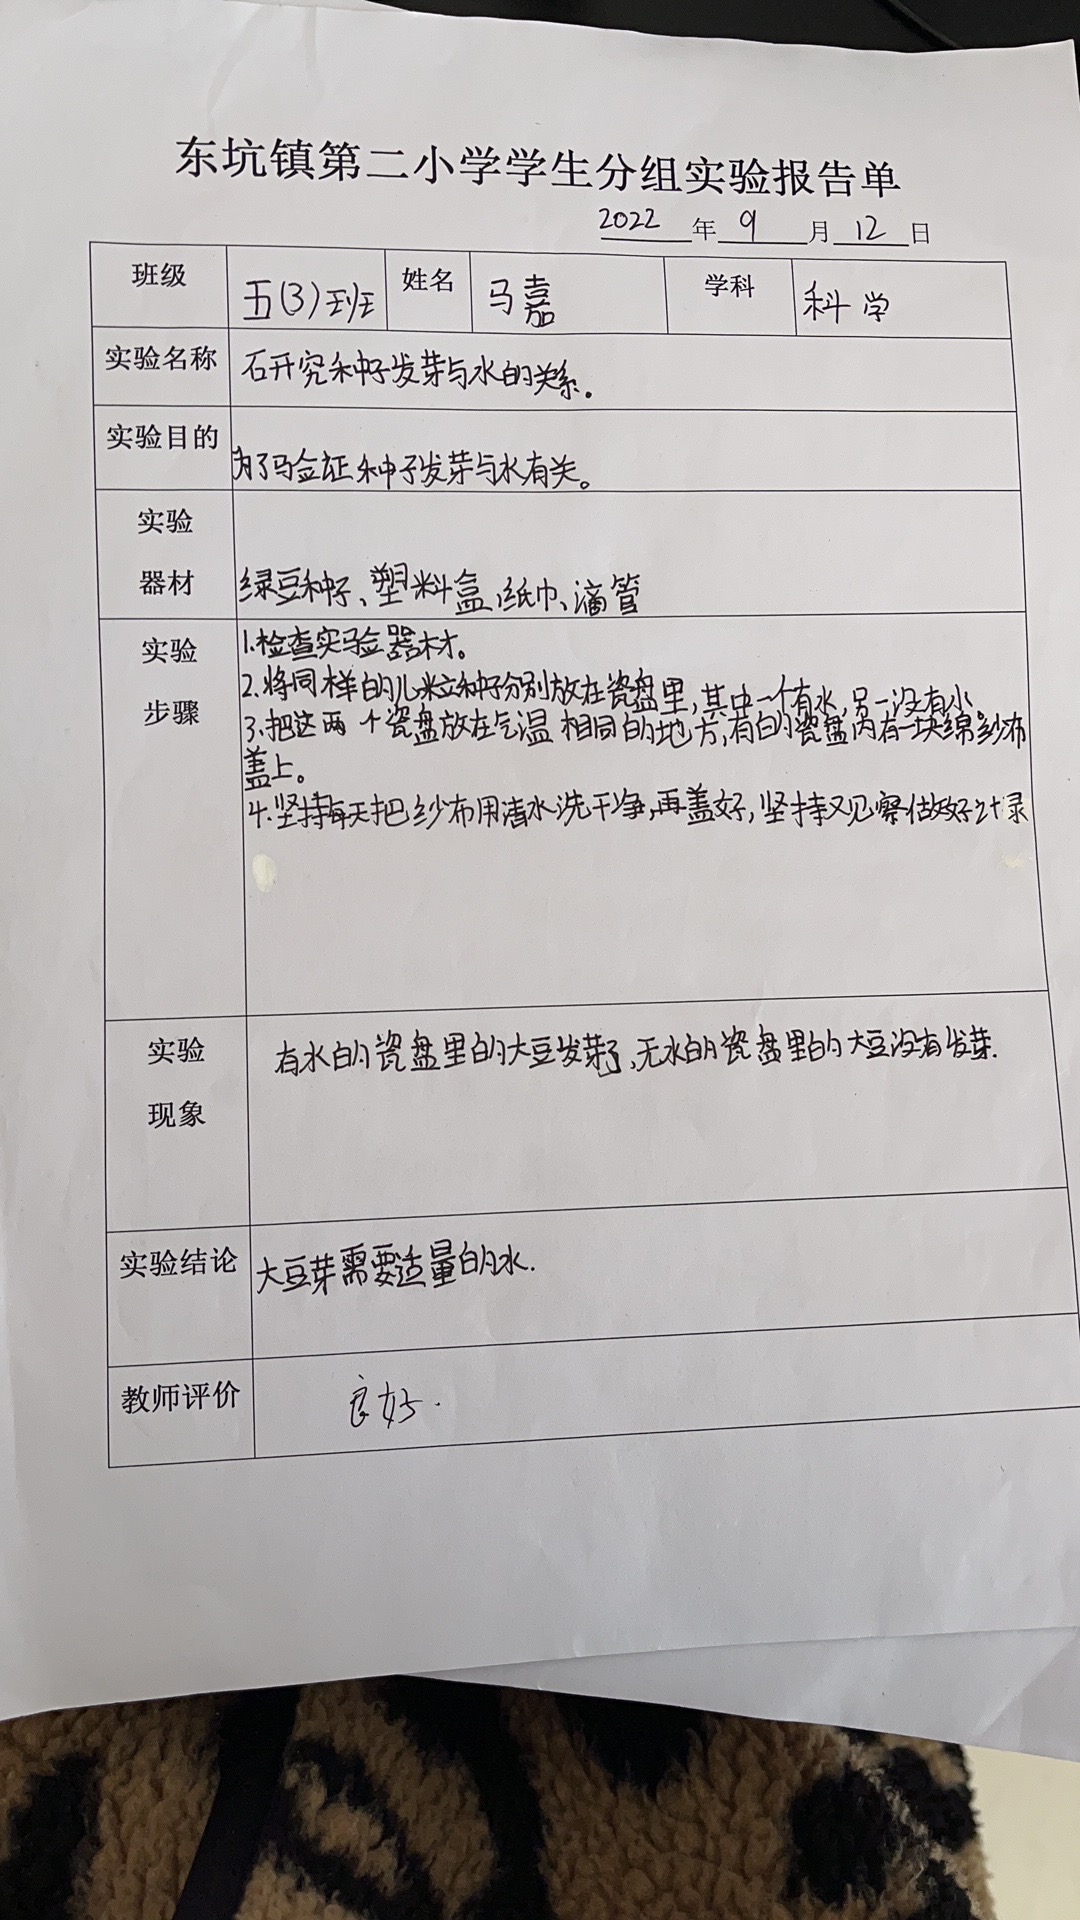 东坑镇第二小学学生分组实验报告单
2022年9月12日
班级 五(3)班 姓名 马嘉 学科 科学
实验名称 研究种子发芽与水的关系。
实验目的 为了验证种子发芽与水有关。
实验
器材 绿豆种子、塑料盒、纸巾、滴管
实验 1.检查实验器材。
步骤 2.将同样的几粒种子分别放在瓷盘里,其中一个有水,另一没有水。
3.把这两个瓷盘放在气温相同的地方,有的瓷盘内有一块绵纱布
盖上。
4.坚持每天把纱布用清水洗干净,再盖好,坚持观察做好记录
实验 有水的瓷盘里的大豆发芽了,无水的瓷盘里的大豆没有发芽.
现象
实验结论 大豆芽需要适量的水.
教师评价 良好.